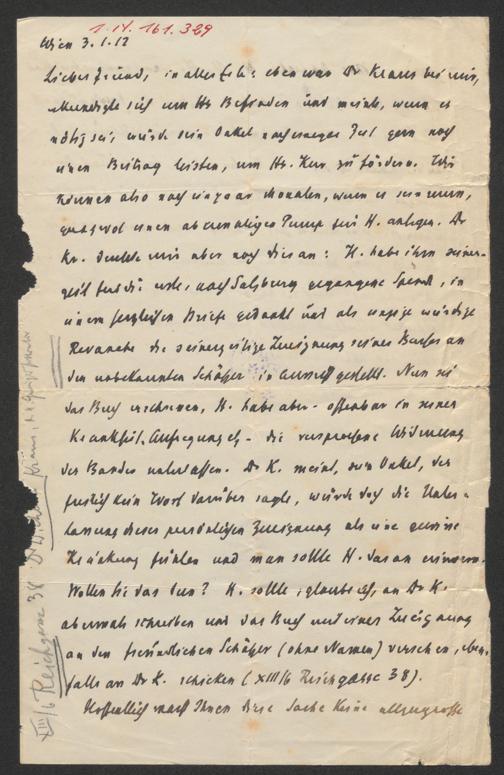 1.IV.161.329
Wien 3.1.12
Lieber Freund, in aller Eile: eben war Dr Kraus bei mir,
erkundigte sich um Hs Befinden und meinte, wenn es
nötig sei, würde sein Onkel nach einiger Zeit gern noch
einen Beitrag leisten, um Hs. Kur zu fördern. Wir
können also nach ein paar Monaten, wenn es sein muss,
ganz wol einen abermaligen Pump für H. anlegen. Dr
Kr. deutete mir aber noch dies an: H. habe ihm seiner-
zeit für die erste, nach Salzburg gegangene Spende, in
einem herzlichen Briefe gedankt und als einzige würdige
Revanche die seinerzeitige Zueignung seines Buches an
den unbekannten Schätzer in Aussicht gestellt. Nun sei
das Buch erschienen, H. habe aber - offenbar in seiner
Krankheit, Aufregung etc. - die versprochene Widmung
des Bandes unterlassen. Dr K. meint, sein Onkel, der
freilich kein Wort darüber sagte, würde doch die Unter-
lassung dieser persönlichen Zueignung als eine gewisse
Kränkung fühlen und man sollte H. daran erinnern.
Wollen Sie das tun? H. sollte, glaube ich, an Dr K.
abermals schreiben und das Buch mit einer Zueignung
an den freundlichen Schätzer (ohne Namen) versehen, eben-
falls an Dr K. schicken (XIII/6 Reichgasse 38).
Hoffentlich macht Ihnen diese Sache keine allzugrosse
XIII/6 Reichgasse 38 Dr Kraus,